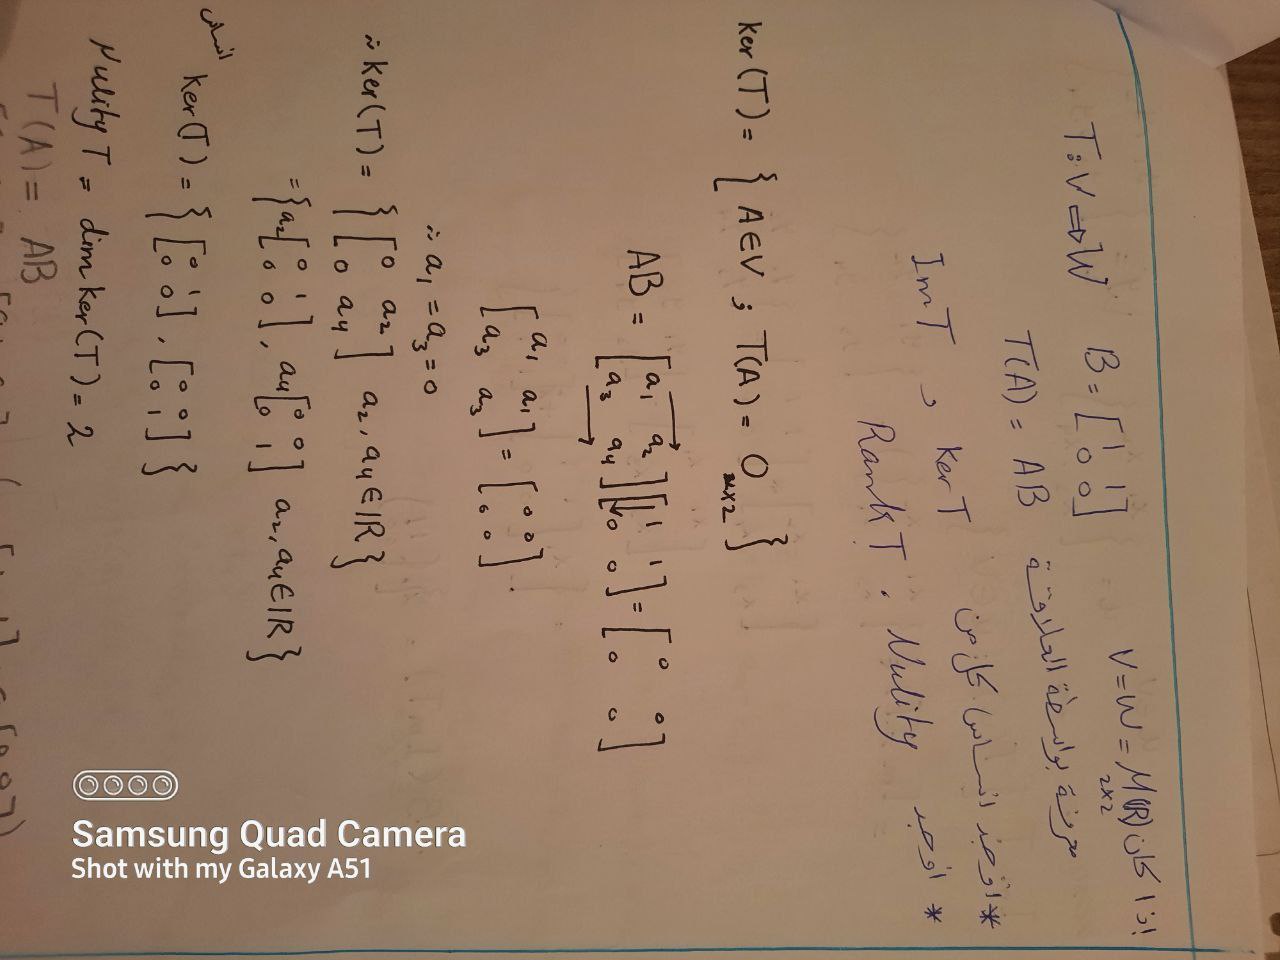 اذا كان V=W=M(R) 2x2 B=[1 1 0 0] T:V⇒W
معرفة بواسطة العلاقة T(A) = AB
* اوجد اساس كل من ker T و Im T
* اوجد Nulity . Rank T
Ker(T) = { A∈V ; T(A) = 0 2x2 }
AB = [a1 a2 a3 a4] [1 1 0 0] = [0 0 0 0]
[a1 a1 a3 a3] = [0 0 0 0] .
∴ a1 = a3 = 0
∴ Ker(T) = { [0 a2 0 a4] a2, a4 ∈ IR }
= { a2 [0 1 0 0], a4 [0 0 0 1] a2, a4 ∈ IR }
اساس Ker(T) = { [0 1 0 0], [0 0 0 1] }
Nulity T = dim Ker(T) = 2
T(A) = AB
Samsung Quad Camera
Shot with my Galaxy A51